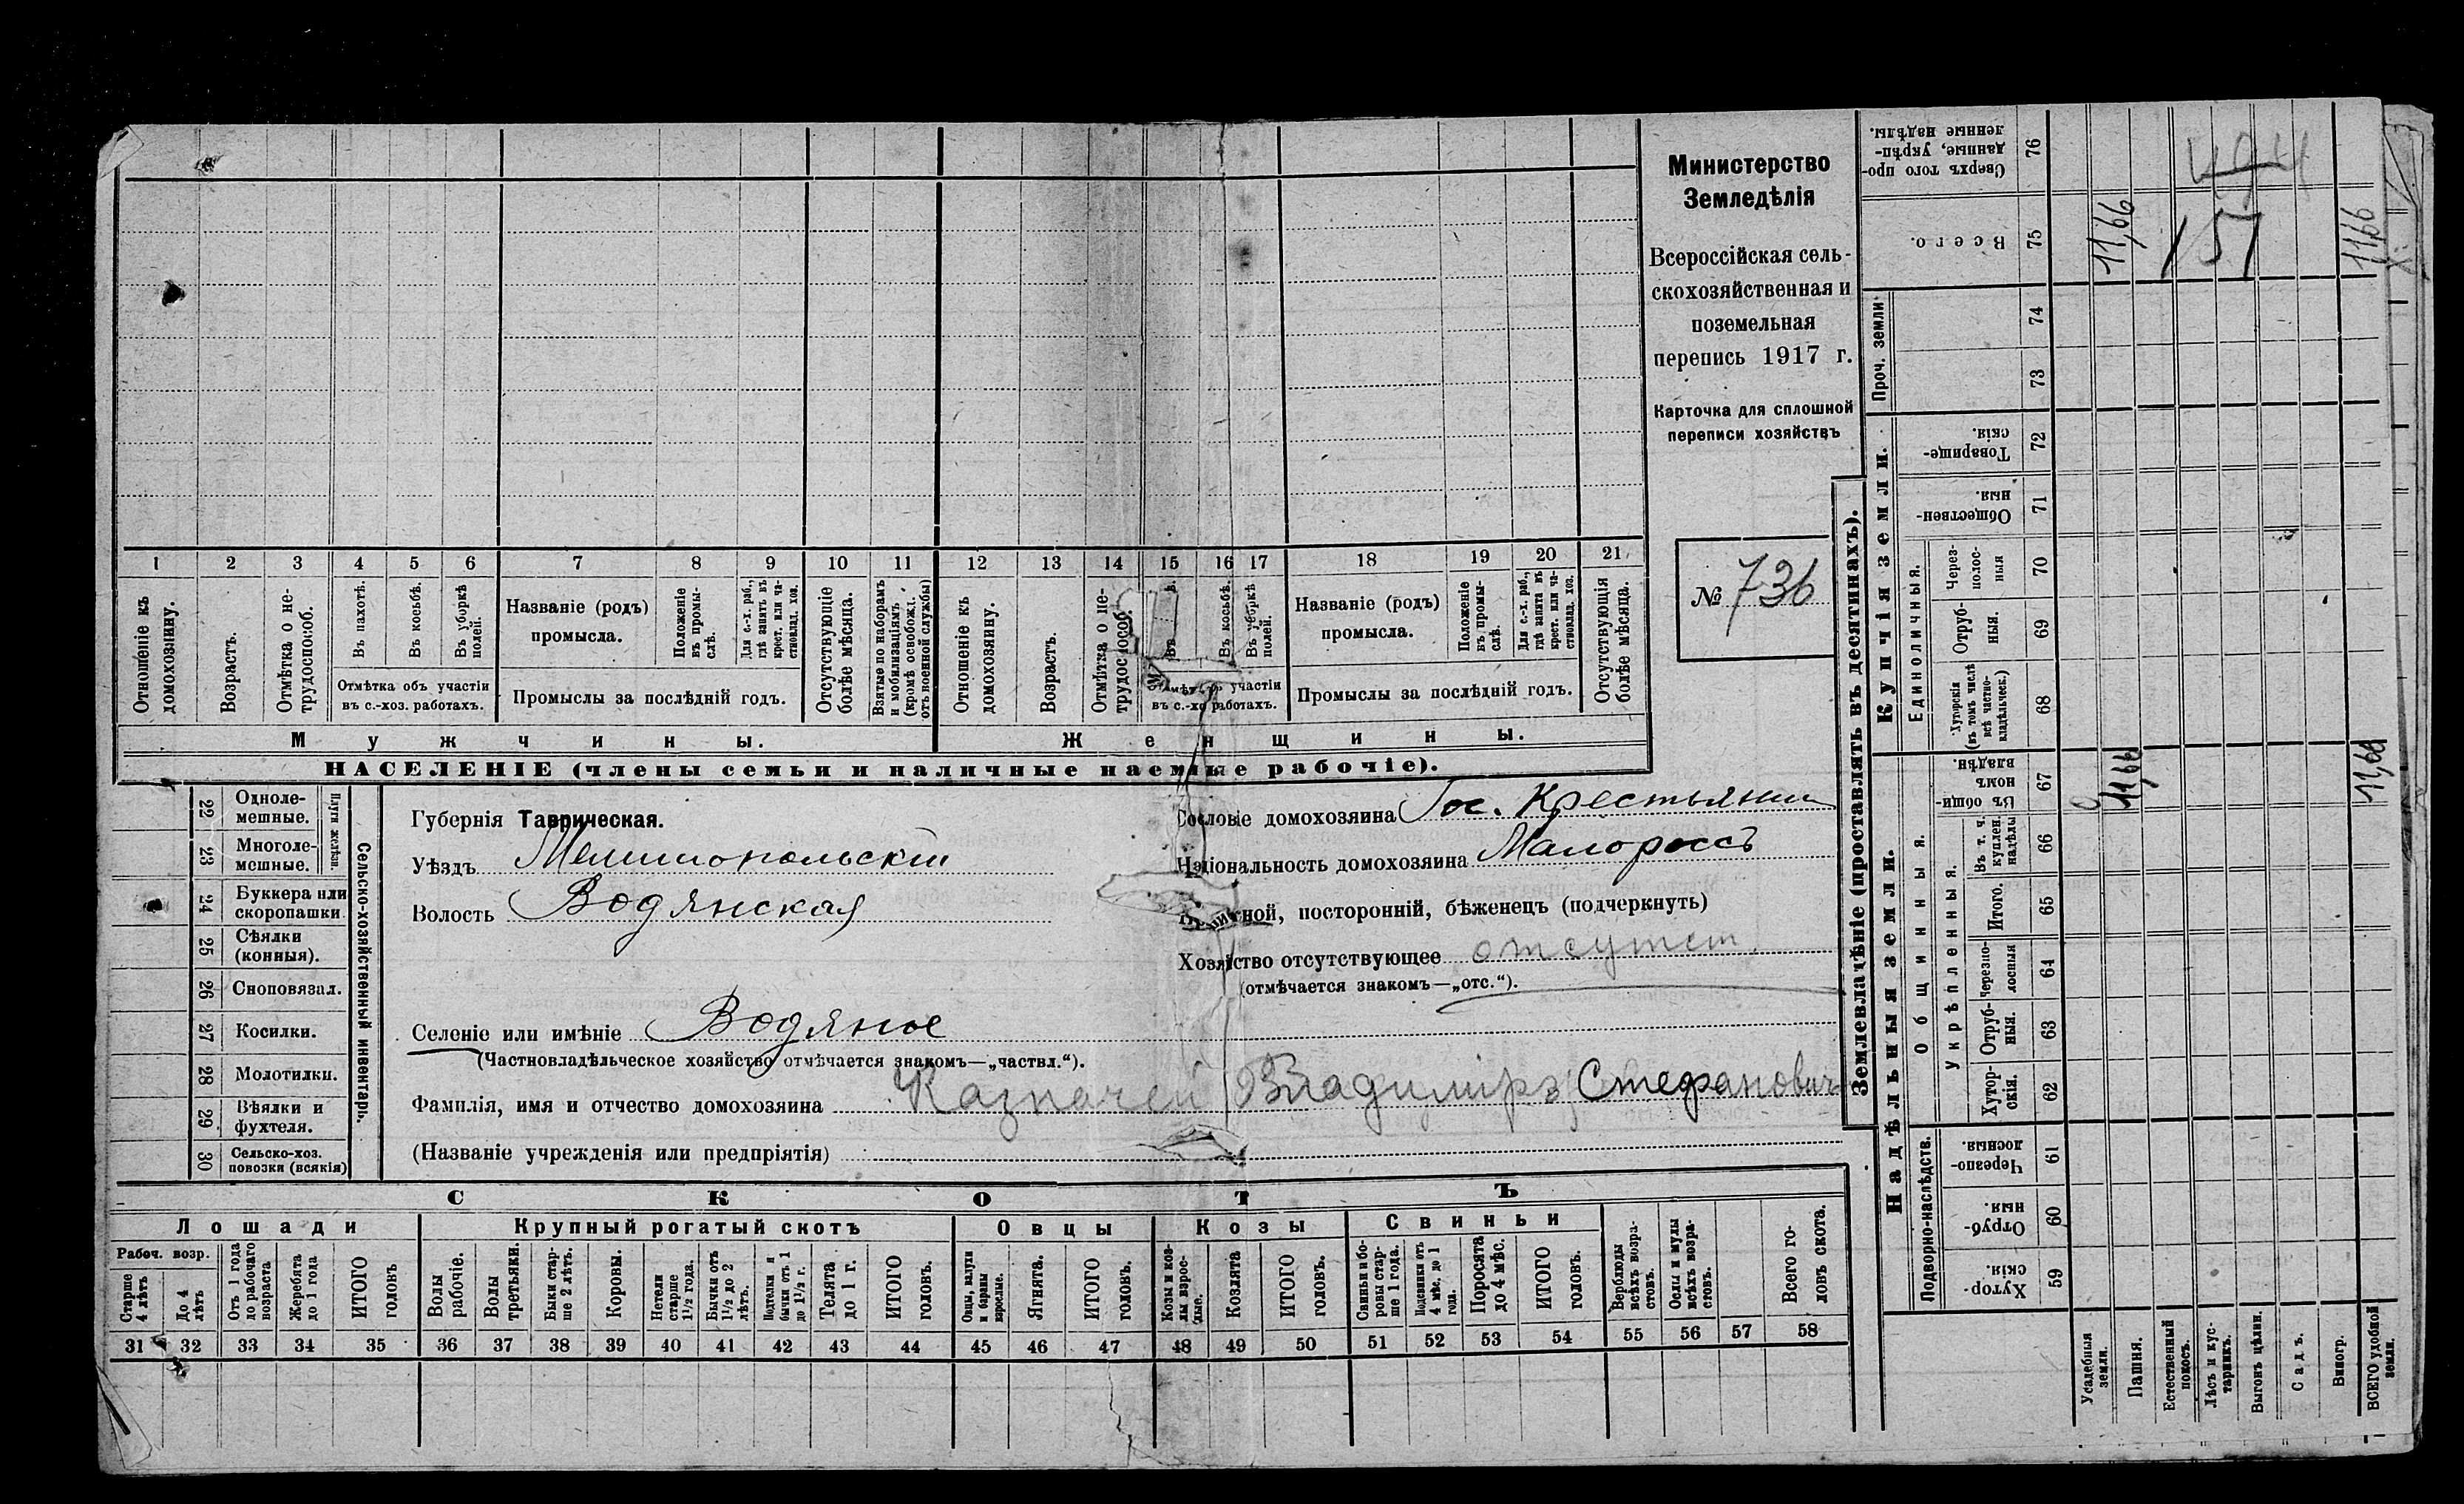 Министерство
Земледѣлія
Всероссійская сель-
скохозяйственная и
поземельная
перепись 1917 г.
Карточка для сплошной
переписи хозяйствъ
№ 736
1 2 3 4 5 6 7 8 9 10 11 12 13 14 15 16 17 18 19 20 21
Отношеніе къ
домохозяину.
Возрастъ.
Отмѣтка о не-
трудоспособ.
Въ пахотѣ.
Въ косьбѣ.
Въ уборкѣ
полей.
Отмѣтка объ участіи
въ с.-хоз. работахъ.
Названіе (родъ)
промысла.
Положеніе
въ промы-
слѣ.
Для с.-х. раб.,
гдѣ занятъ въ
крест. или ча-
стновлад. хоз.
Промыслы за послѣдній годъ.
Отсутствующіе
болѣе мѣсяца.
Взятые по наборамъ
и мобилизаціямъ
(кромѣ освобожд.
отъ военной службы)
Отношеніе къ
домохозяину.
Возрастъ.
Отмѣтка о не-
трудоспособ.
Въ косьбѣ.
Въ уборкѣ
полей.
участіи
въ с.-хо работахъ.
Названіе (родъ)
промысла.
Положеніе
въ промы-
слѣ.
Для с.-х. раб.,
гдѣ занята въ
крест. или ча-
стновлад. хоз.
Промыслы за послѣдній годъ.
Отсутствующія
болѣе мѣсяца.
Мужчины.
Женщины.
НАСЕЛЕНІЕ (члены семьи и наличные наемные рабочіе).
22 Одноле-
мешные.
23 Многоле-
мешные.
Плуги желѣзн.
24 Буккера или
скоропашки
25 Сѣялки
(конныя).
26 Сноповязал.
27 Косилки.
28 Молотилки.
29 Вѣялки и
фухтеля.
30 Сельско-хоз.
повозки (всякія)
Сельско-хозяйственный инвентарь.
Губернія Таврическая.
Уѣздъ Мелитопольскій
Волость Водянская
Селеніе или имѣніе Водяное
(Частновладѣльческое хозяйство отмѣчается знакомъ—„частвл.“).
Сословіе домохозяина Гос. Крестьянин
Національность домохозяина Малороссъ
Приписной, посторонній, бѣженецъ (подчеркнуть)
Хозяйство отсутствующее отсутст.
(отмѣчается знакомъ—„отс.“).
Фамилія, имя и отчество домохозяина Казначей Владиміръ Стефановичъ
(Названіе учрежденія или предпріятія)
СКОТЪ
Лошади
Рабоч. возр.
Старше
4 лѣтъ
До 4
лѣтъ
Отъ 1 года
до рабочаго
возраста
Жеребята
до 1 года
ИТОГО
головъ
Крупный рогатый скотъ
Волы
рабочіе.
Волы
третьяки.
Быки стар-
ше 2 лѣтъ.
Коровы.
Нетели
старше
1½ года.
Бычки отъ
1½ до 2
лѣтъ.
Подтелки и
бычки отъ 1
до 1½ г.
Телята
до 1 г.
ИТОГО
головъ.
Овцы
Овцы, валухи
и бараны
взрослые.
Ягнята.
ИТОГО
головъ.
Козы
Козы и коз-
лы взрос-
лые.
Козлята
ИТОГО
головъ.
Свиньи
Свиньи и бо-
ровы стар-
ше 1 года.
Подсвинки отъ
4 мѣс. до 1
года.
Поросята
до 4 мѣс.
ИТОГО
головъ.
Верблюды
всѣхъ возра-
стовъ.
Ослы и мулы
всѣхъ возра-
стовъ.
Всего го-
ловъ скота.
31 32 33 34 35 36 37 38 39 40 41 42 43 44 45 46 47 48 49 50 51 52 53 54 55 56 57 58
Землевладѣніе (проставлять въ десятинахъ).
Надѣльныя земли.
Подворно-наслѣдств.
Хутор-
скія.
59
Отруб-
ныя
60
Черезпо-
лосныя.
61
Общинныя.
Укрѣпленныя.
Хутор-
скія.
62
Отруб-
ныя.
63
Черезпо-
лосныя
64
Итого.
65
Въ т. ч.
куплен.
надѣлы
66
Въ общи-
номъ
владѣн.
67
Купчія земли.
Единоличныя.
Хуторскія
(въ томъ числѣ
всѣ частно-
владѣльческ.)
68
Отруб-
ныя.
69
Через-
полос-
ныя
70
Обществен-
ныя.
71
Товарище-
скія.
72
Проч. земли.
73
74
Всего.
75
Сверхъ того про-
данные, укрѣп-
ленные надѣлы.
76
Усадебныя
земли.
Пашня.
11,66
11,66
Естественный
покосъ.
Лѣсъ и кус-
тарникъ.
Выгонъ цѣлин.
Садъ.
Виногр.
ВСЕГО удобной
земли.
11,66
11,66
151